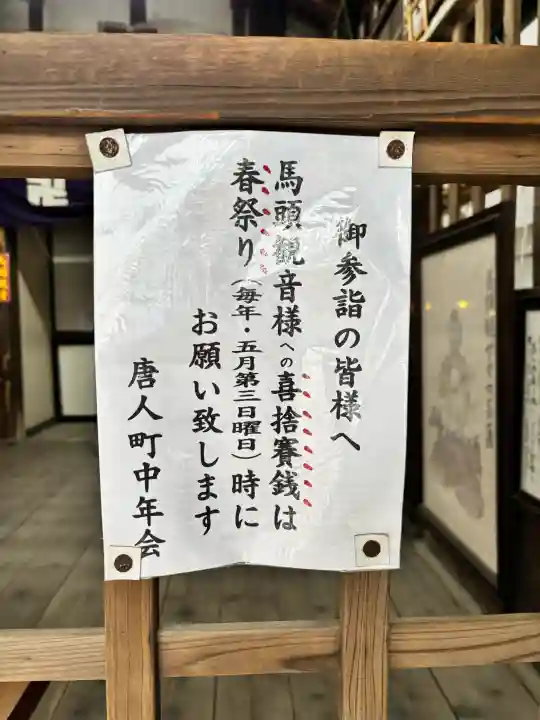 御参詣の皆様へ
馬頭観音様への喜捨賽銭は
春祭り(毎年・五月第三日曜日)時に
お願い致します
唐人町中年会